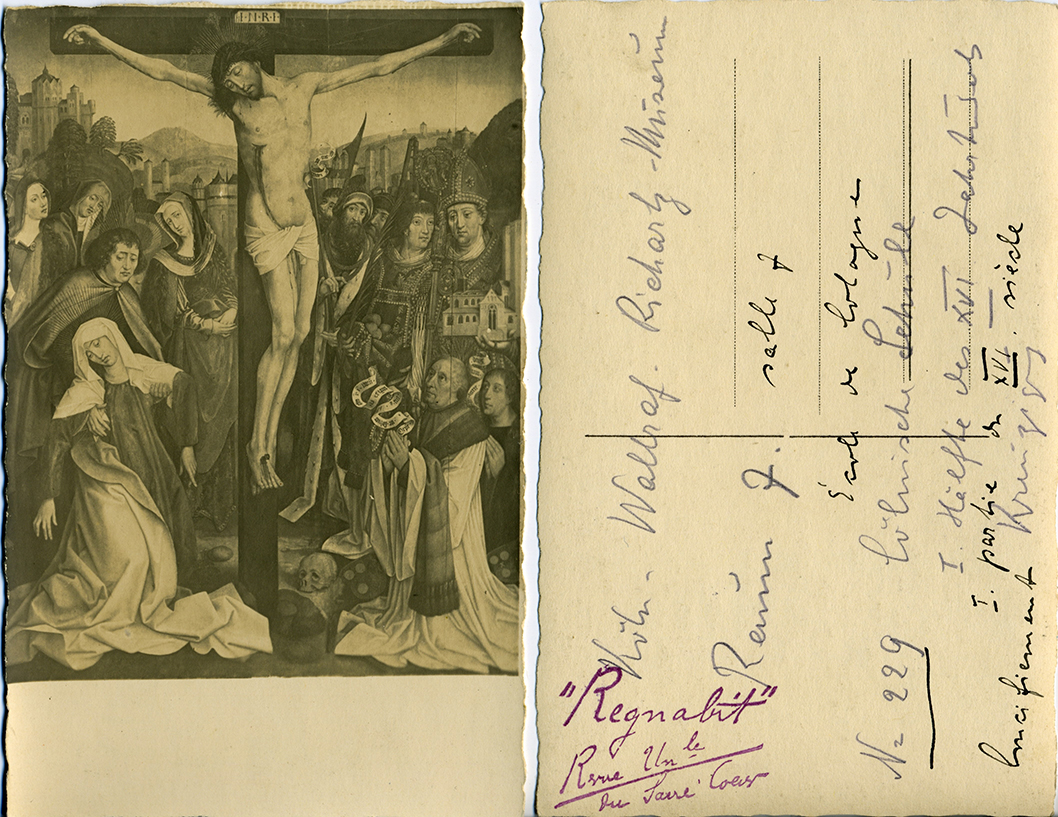 I·N·R·I
Köln - Wallraf. Richartz-Museum
Raum 7.
salle 7
École de Cologne
Kölnische Schule
I. Hälfte des XVI Jahrhds
I. partie du XVI. siècle
Kreuzigung
Crucifiement
N= 229
"Regnabit"
Revue Unle
du Sacré Coeur